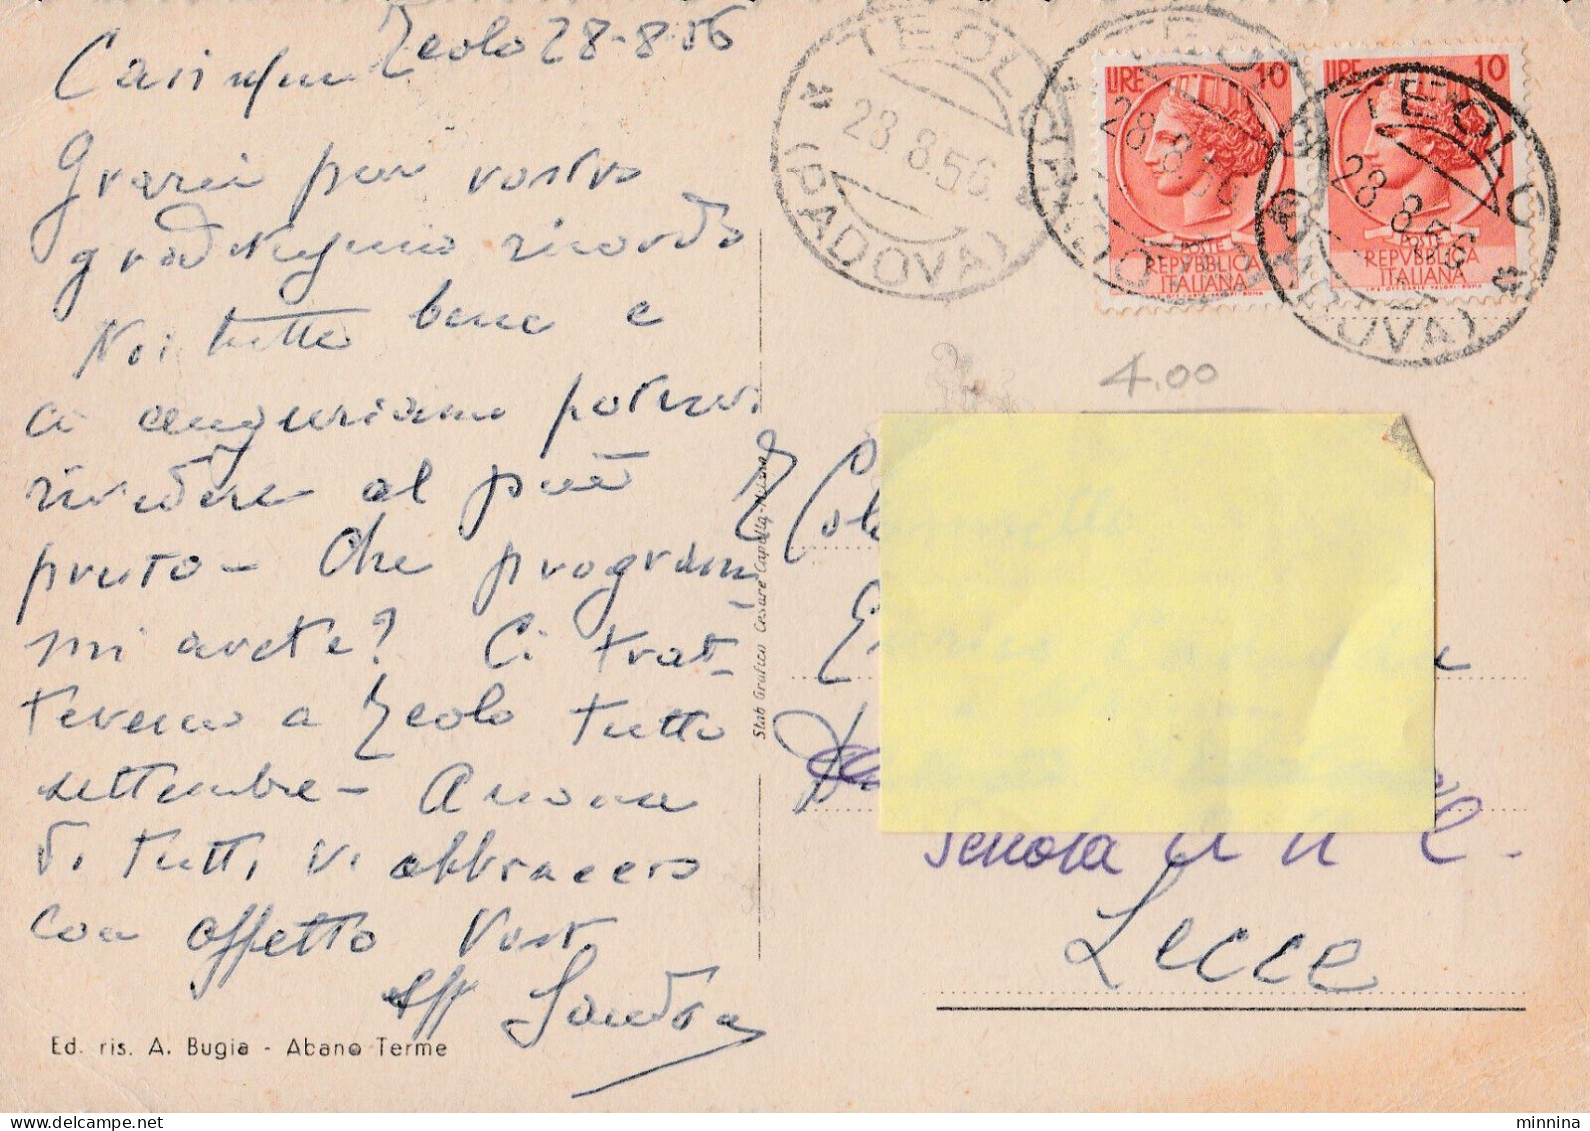 Teolo 28-8-56
Carissimi
Grazie per vostro
graditissimo ricordo
Noi tutti bene e
ci auguriamo potervi
rivedere al più
presto - Che program-
mi avete? Ci trat-
terremo a Teolo tutto
settembre - A nome
di tutti vi abbraccio
con affetto Vostr
aff Sandra
Ed. ris. A. Bugia - Abano Terme
Stab Grafico Cesare Capello-Milano
TEOLO
(PADOVA)
28.8.56
TEOLO
(PADOVA)
28.8.56
TEOLO
(PADOVA)
28.8.56
LIRE 10
POSTE
REPVBBLICA
ITALIANA
LIRE 10
POSTE
REPVBBLICA
ITALIANA
4.00
Scuola
Lecce
minnina